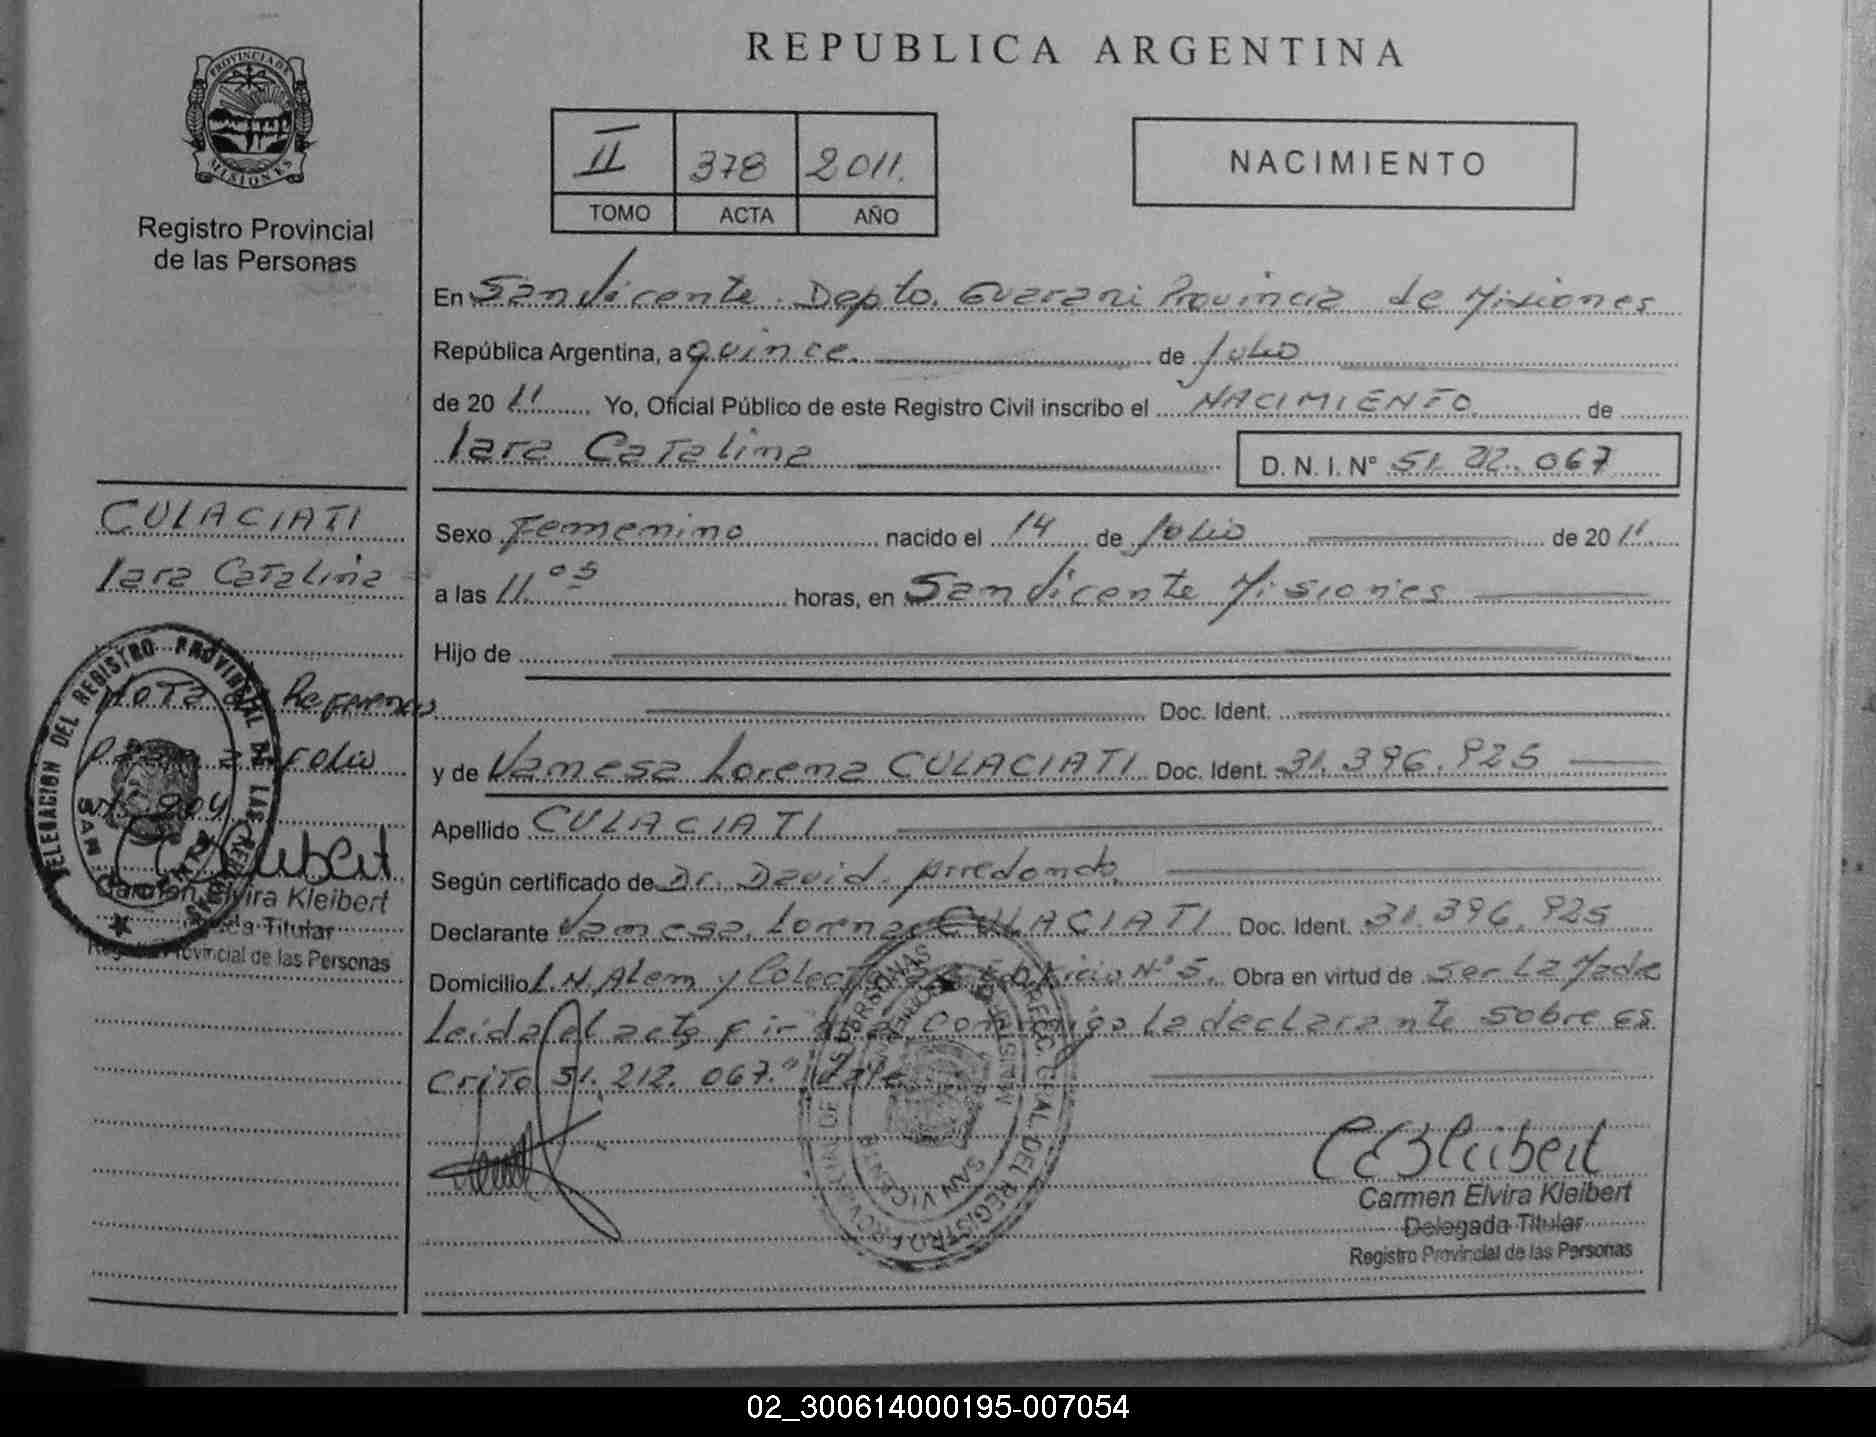 REPUBLICA ARGENTINA
PROVINCIA DE MISIONES
Registro Provincial
de las Personas
II 378 2011.
TOMO ACTA AÑO
NACIMIENTO
En San Vicente. Depto. Guarani Provincia de Misiones
República Argentina, a quince. de Julio
de 20 11 Yo, Oficial Público de este Registro Civil inscribo el NACIMIENTO de
Iara Catalina D. N. I. N° 51. 212. 067
CULACIATI
Iara Catalina
Sexo Femenino nacido el 14 de Julio de 20 11
a las 11 05 horas, en San Vicente Misiones
Hijo de
Doc. Ident.
y de Vanesa Lorena CULACIATI Doc. Ident. 31. 396. 925
Apellido CULACIATI
Según certificado de Dr. David. Arredondo
Declarante Vanesa Lorena CULACIATI Doc. Ident. 31. 396. 925
Domicilio L.N. Alem y Edificio N° 5. Obra en virtud de ser La Madre
Leida el acta firma conmigo La declarante sobre es
crito 51. 212. 067." Vale
Nota de
Pasa a Folio
204
Carmen Elvira Kleibert
Titular
Registro Provincial de las Personas
DELEGACION DEL REGISTRO PROVINCIAL DE LAS PERSONAS
SAN VICENTE
Carmen Elvira Kleibert
Delegada Titular
Registro Provincial de las Personas
02_300614000195-007054